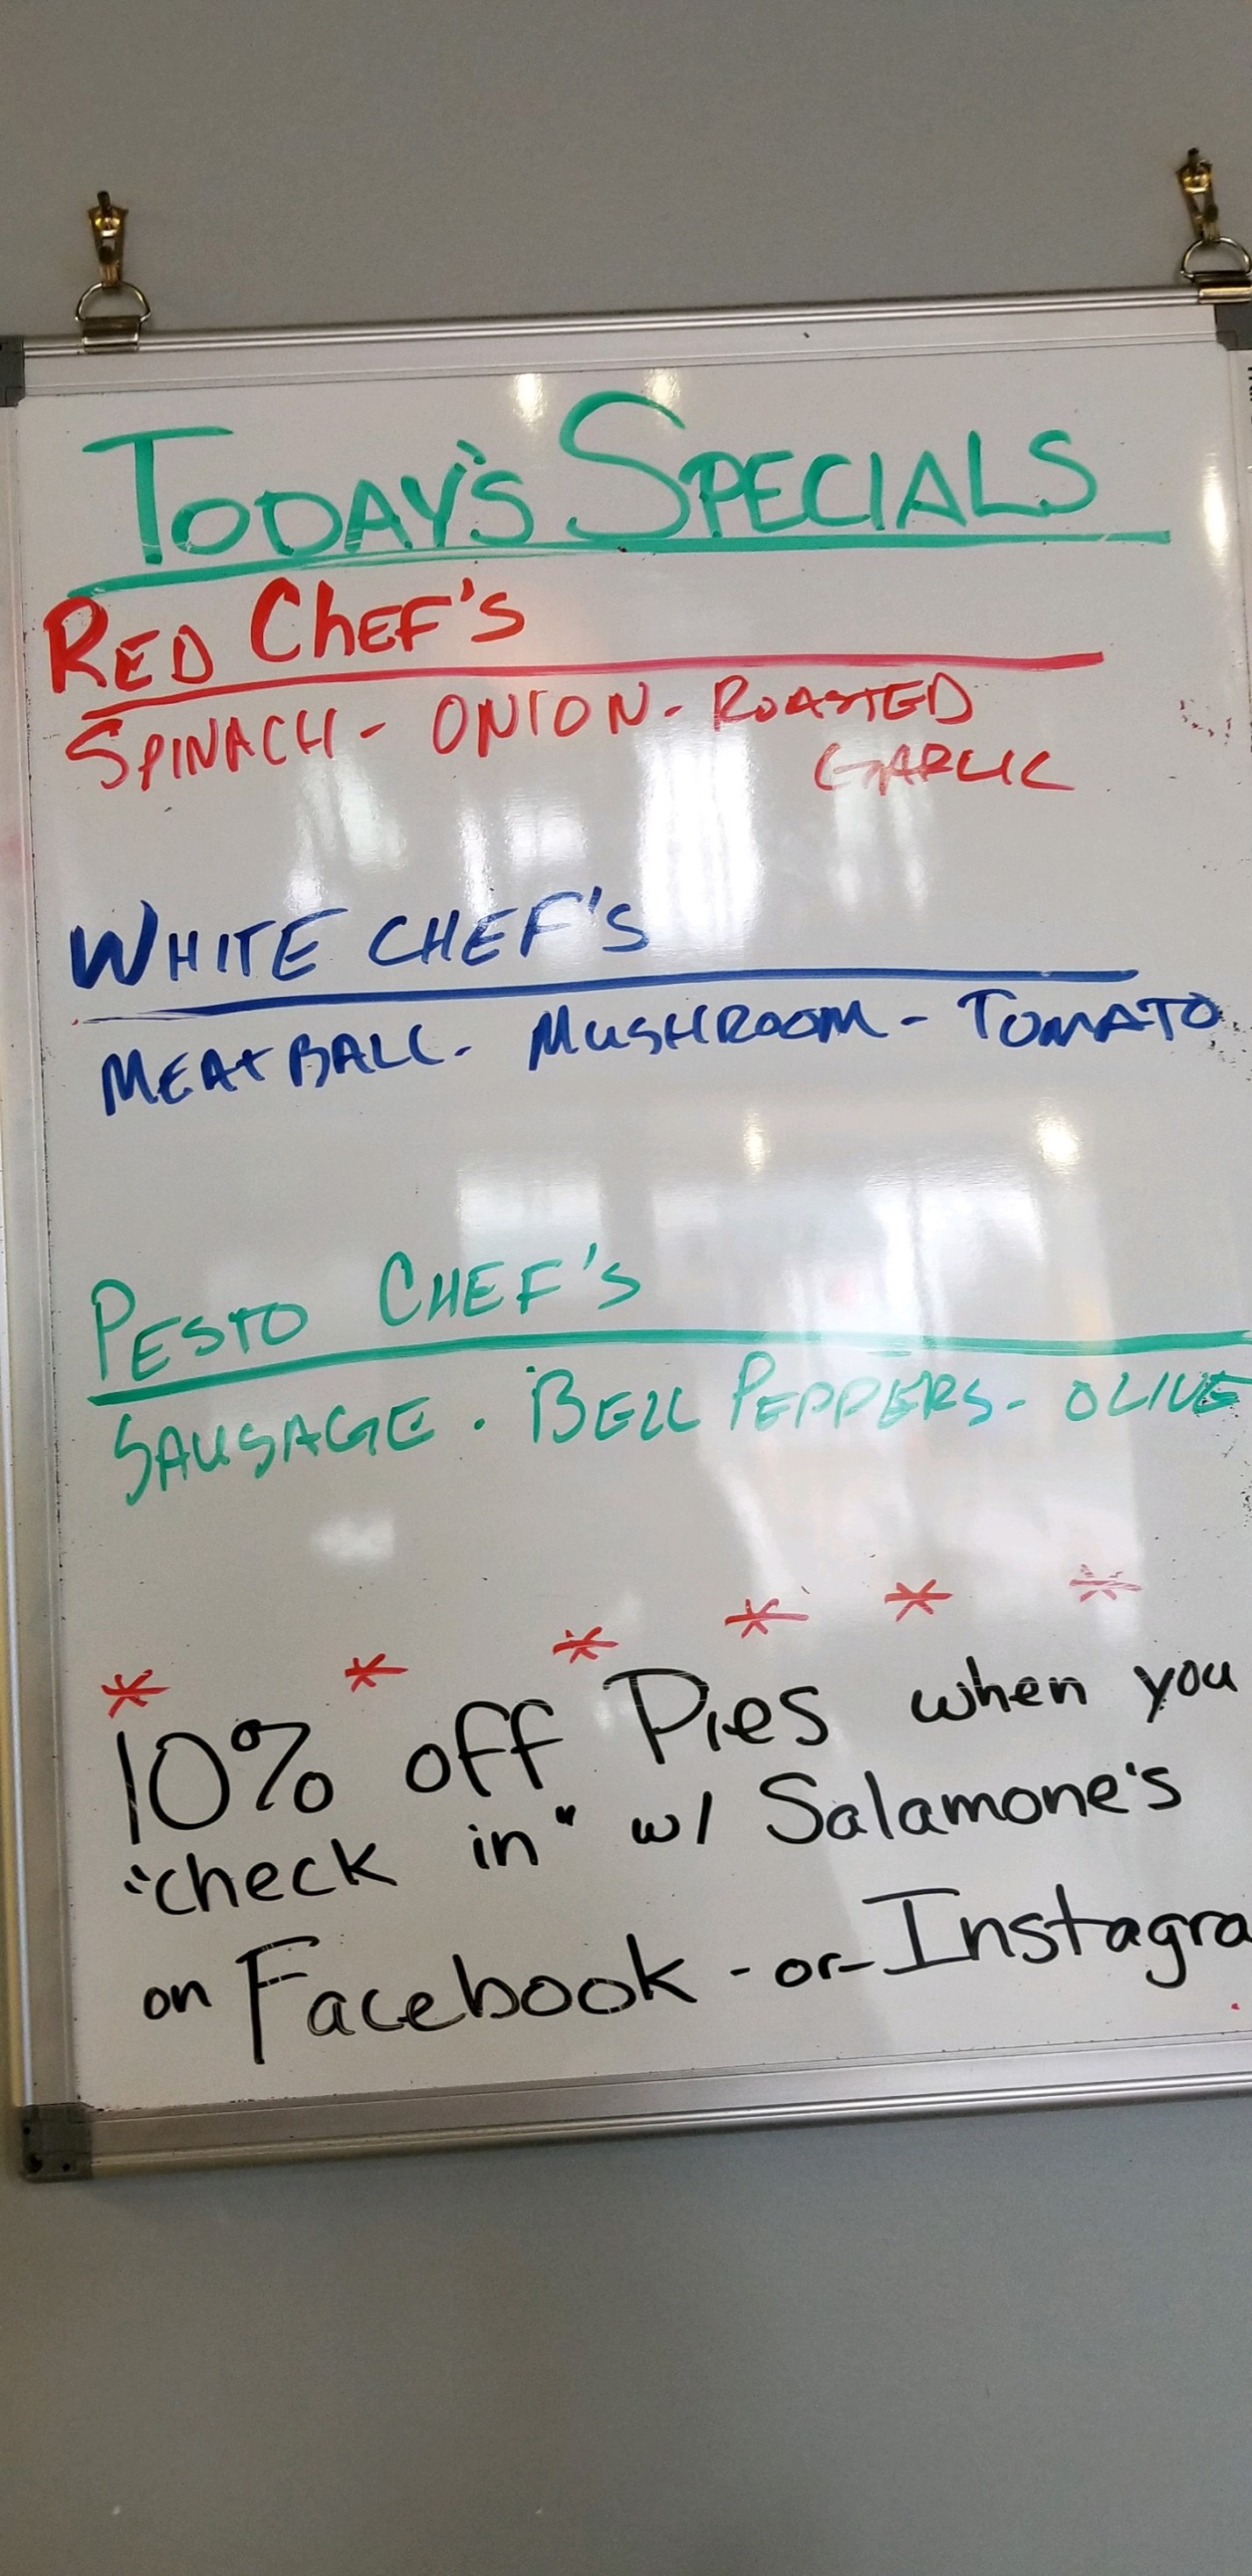 TODAY'S SPECIALS
RED ChEF'S
SPINACH - ONION - ROASTED
GARLIC
WHITE CHEF'S
MEATBALL - MUSHROOM - TOMATO
PESTO CHEF'S
SAUSAGE - BELL PEPPERS - OLIVE
* * * * * *
10% off Pies when you
"check in" w/ Salamone's
on Facebook -or- Instagra